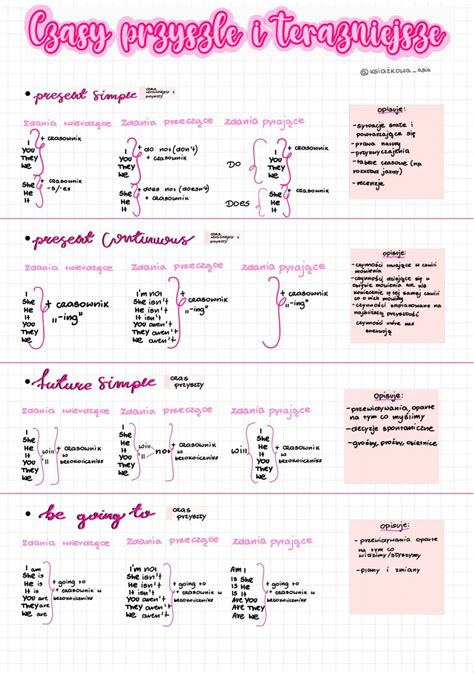 Czasy przyszłe i teraźniejsze
@książkowa_asia
• present simple
czas teraźniejszy i przyszły
opisuje:
- sytuacje stałe i powtarzające się
- prawa natury
- przyzwyczajenia
- tabele czasowe (np. rozkład jazdy)
- recenzje
zdania twierdzące
I
You
They
We
+ czasownik
She
He
It
+ czasownik
-s/-es
zdania przeczące
I
You
They
We
+ do not (don't)
+ czasownik
She
He
It
+ does not (doesn't)
+ czasownik
zdania pytające
DO
I
You
They
We
DOES
She
He
It
• present continuous
opisuje:
- czynności trwające w chwili mówienia
zdania twierdzące
I
She
He
It
You
They
We
+ czasownik
"-ing"
zdania przeczące
I'm not
She isn't
He isn't
It isn't
You aren't
They aren't
We aren't
+ czasownik
"-ing"
zdania pytające
• future simple
czas
przyszły
opisuje:
- przewidywania oparte
na tym co myślimy
- decyzje spontaniczne
- groźby, prośby, obietnice
zdania twierdzące
I
She
He
It
You
They
We
will
+ czasownik
w
bezokoliczniku
zdania przeczące
I
She
He
It
You
They
We
will
not
+ czasownik
w
bezokoliczniku
zdania pytające
will
I
She
He
It
You
They
We
+ czasownik
w
bezokoliczniku
• be going to
czas
przyszły
opisuje:
- przewidywania oparte
na tym co
widzimy/słyszymy
- plany i zmiany
zdania twierdzące
I am
She is
He is
It is
You are
They are
We are
+ going to
+ czasownik w
bezokoliczniku
zdania przeczące
I'm not
She isn't
He isn't
It isn't
You aren't
They aren't
We aren't
+ going to
+ czasownik w
bezokoliczniku
zdania pytające
Am I
Is She
Is He
Is It
Are You
Are They
Are We
+ going to
+ czasownik w
bezokoliczniku